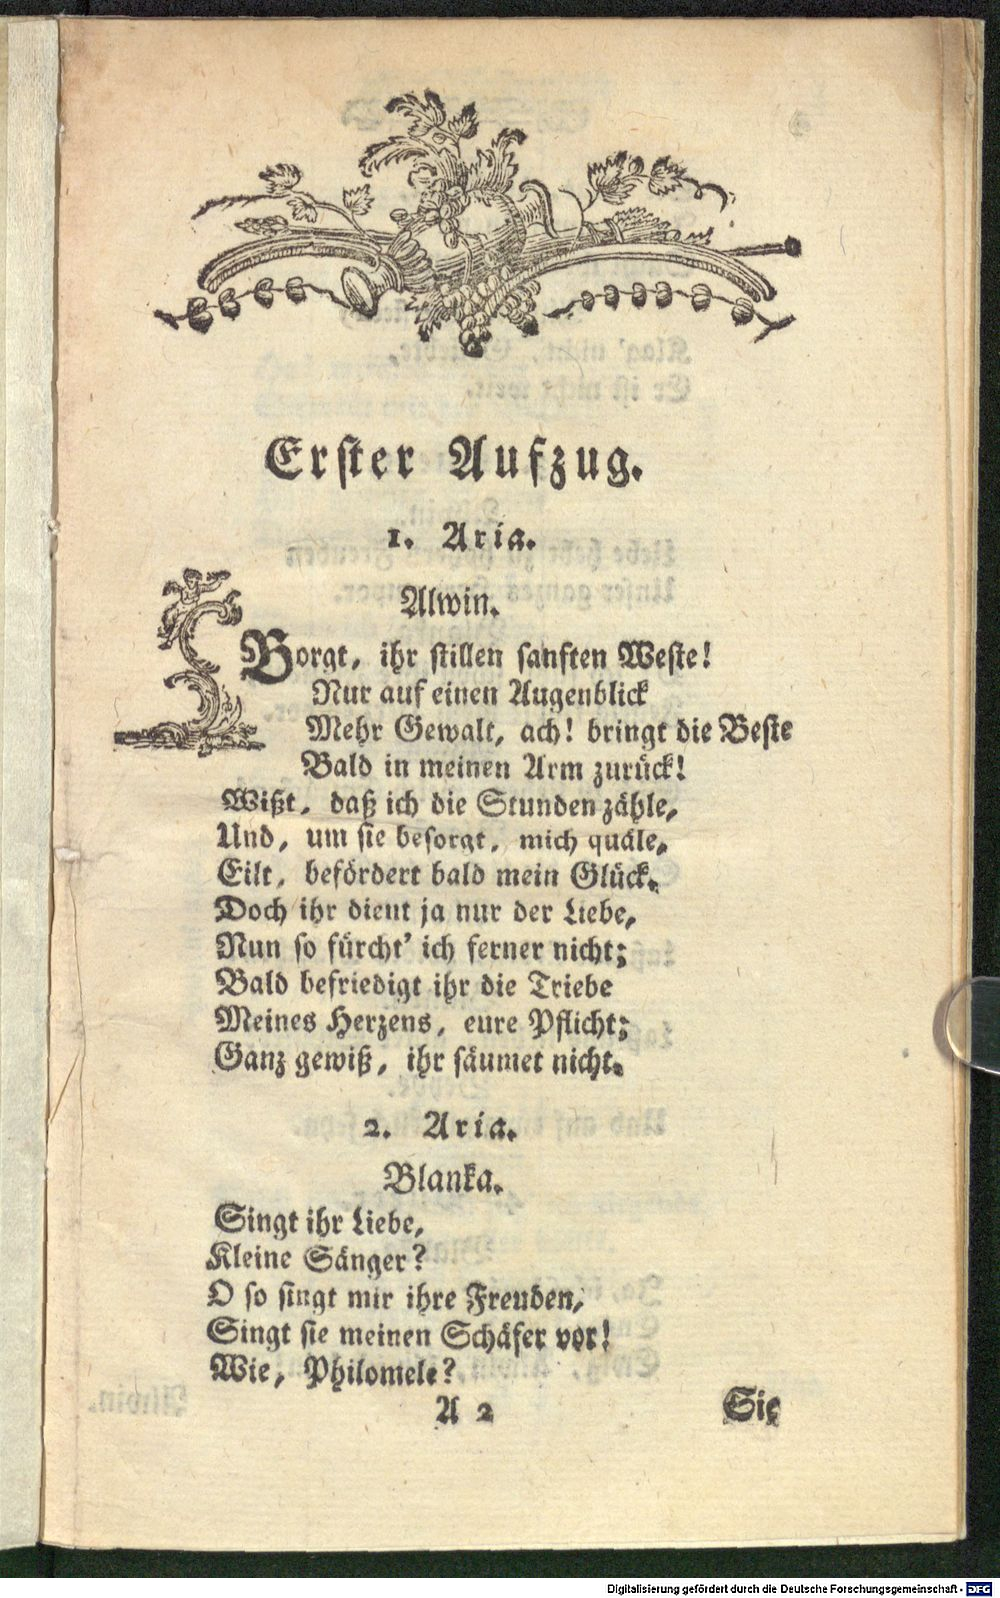 Erster Aufzug.
1. Aria.
Alwin.
Borgt, ihr stillen sanften Weste!
Nur auf einen Augenblick
Mehr Gewalt, ach! bringt die Beste
Bald in meinen Arm zurück!
Wißt, daß ich die Stunden zähle,
Und, um sie besorgt, mich quäle,
Eilt, befördert bald mein Glück.
Doch ihr dient ja nur der Liebe,
Nun so fürcht' ich ferner nicht;
Bald befriedigt ihr die Triebe
Meines Herzens, eure Pflicht;
Ganz gewiß, ihr säumet nicht.
2. Aria.
Blanka.
Singt ihr Liebe,
Kleine Sänger?
O so singt mir ihre Freuden,
Singt sie meinen Schäfer vor!
Wie, Philomele?
A 2 Sie
Digitalisierung gefördert durch die Deutsche Forschungsgemeinschaft - DFG